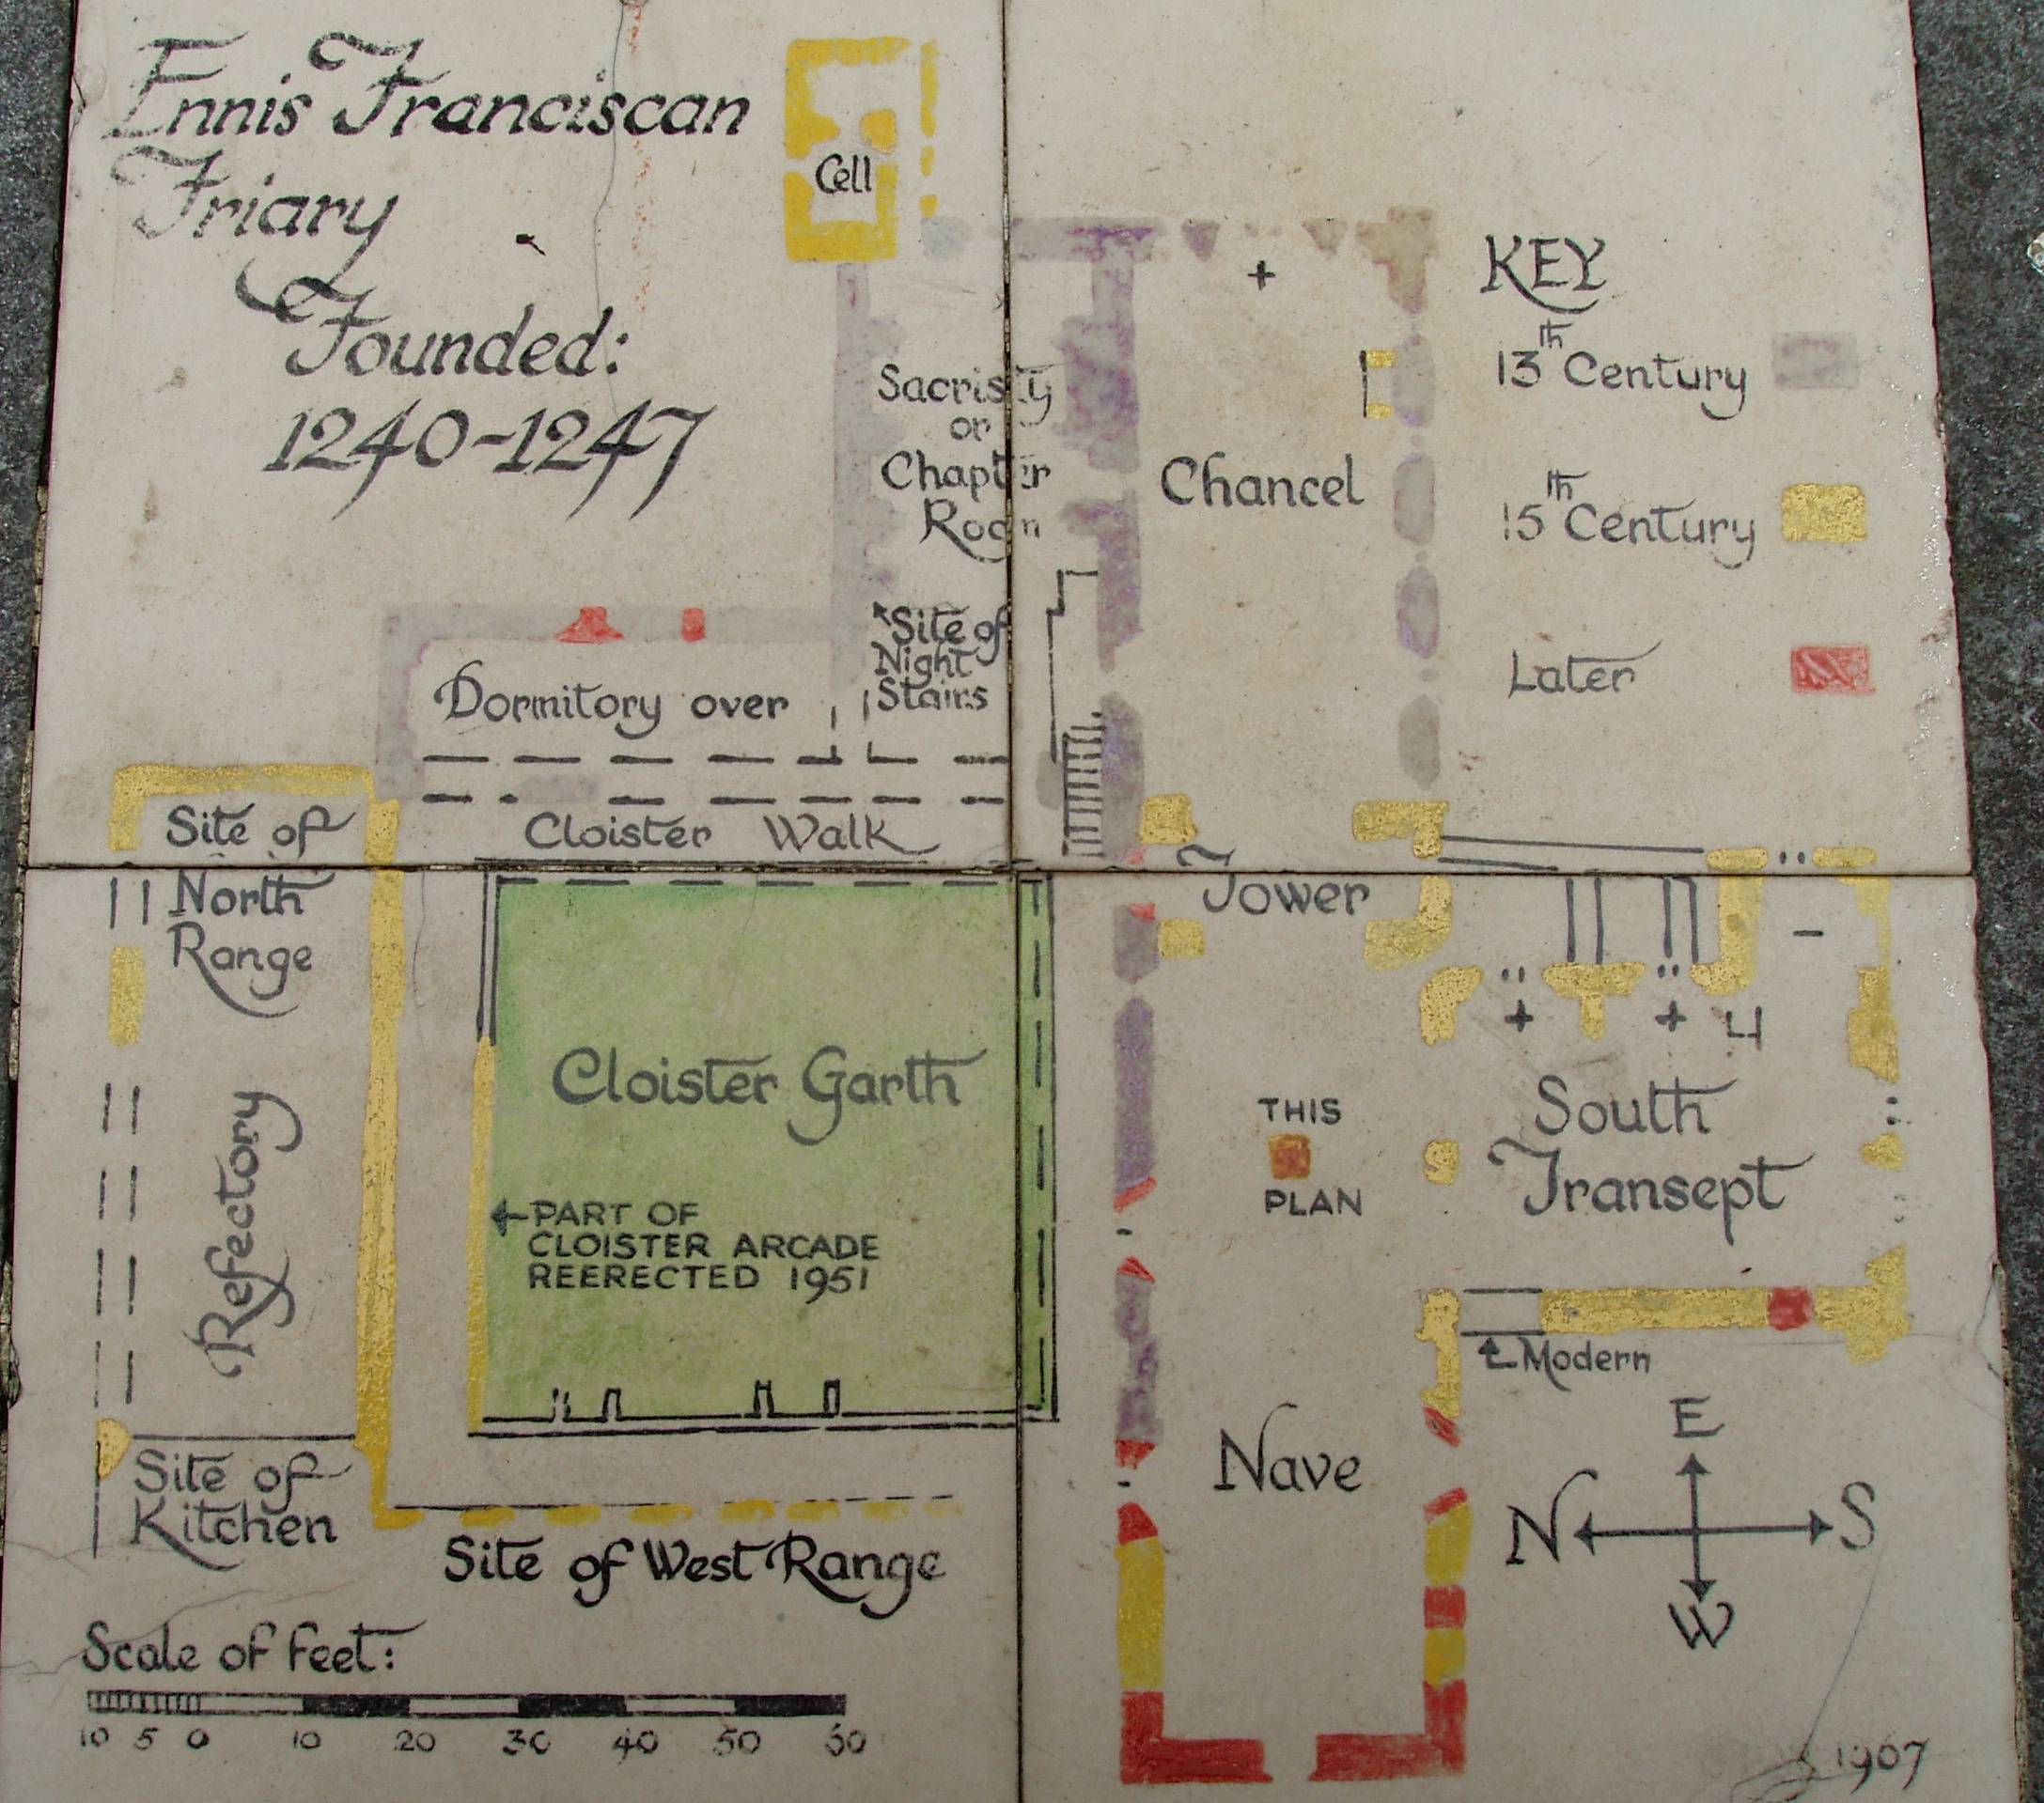 Ennis Franciscan
Friary
Founded:
1240-1247
Cell
Sacristy
or
Chapter
Room
Site of
Night
Stairs
Dormitory over
Cloister Walk
Chancel
KEY
13th Century
15th Century
Later
Site of
North
Range
Refectory
Site of
Kitchen
Cloister Garth
PART OF
CLOISTER ARCADE
REERECTED 1951
Site of West Range
Tower
THIS
PLAN
South
Transept
Modern
Nave
E
N S
W
Scale of feet:
10 5 0 10 20 30 40 50 60
1967